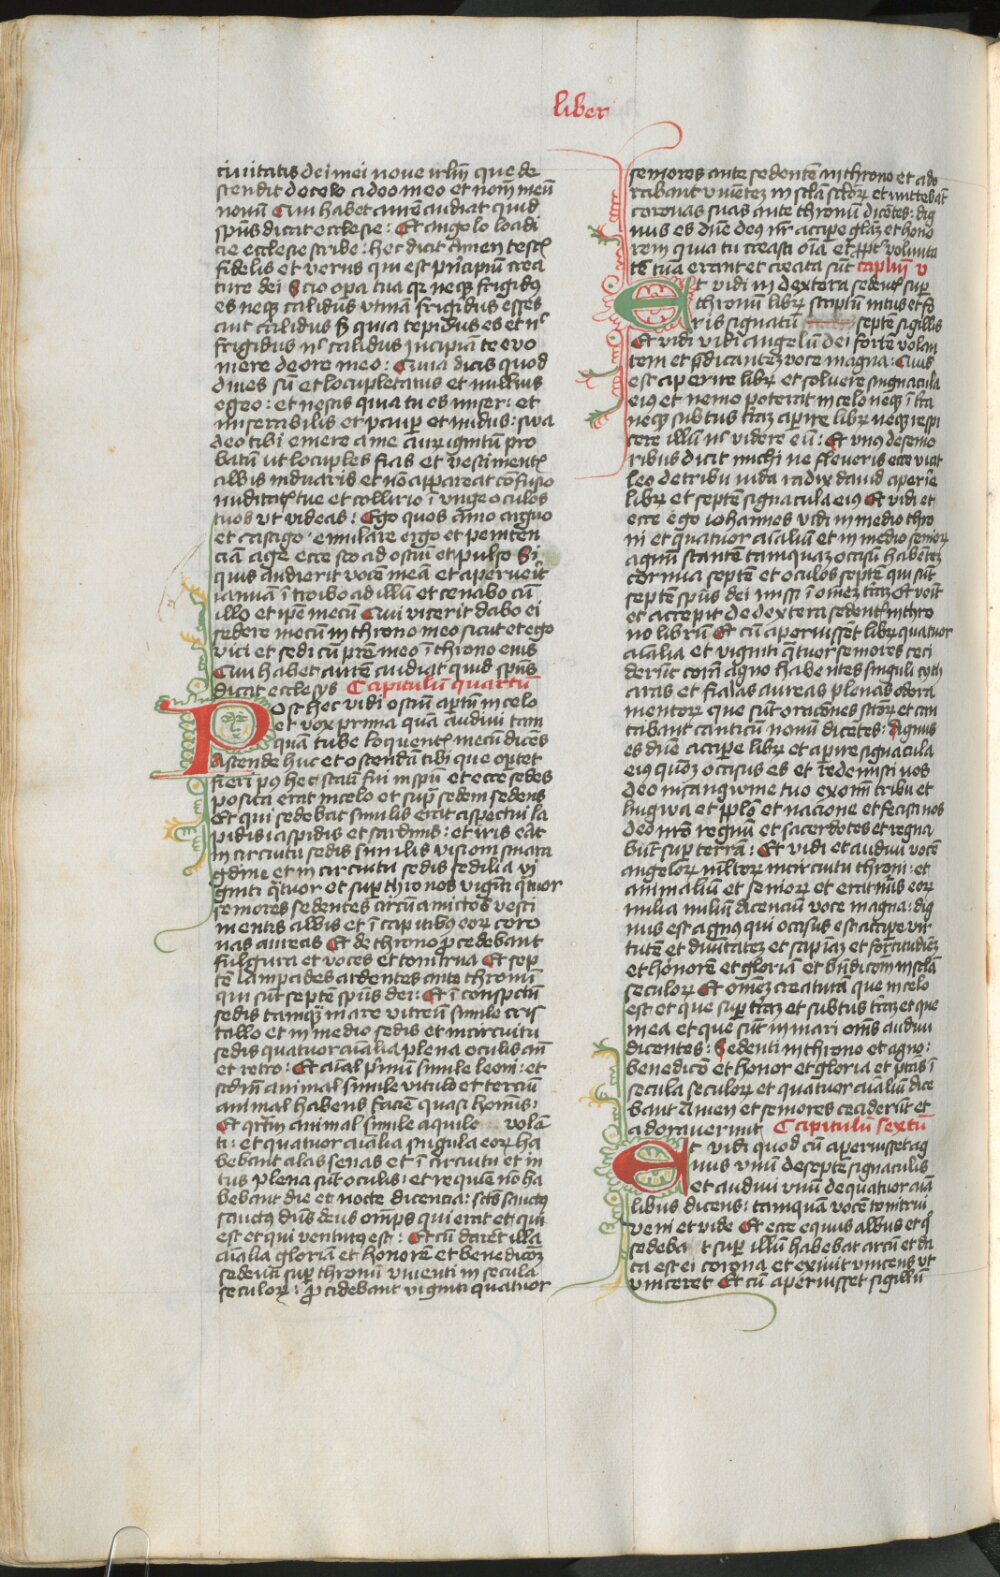 liber
ciuitatis dei mei noue irl̅m que de
scendit de celo a deo meo et nom̅ meu̅
nouu̅ Qui habet aure̅ audiat quid
sp̅us dicat ecclesie : Et angelo loadi
cie ecclesie scribe : hec dicit Amen test
fidelis et verus qui est principiu̅ crea
ture dei Scio op̅a tua q̅r neq̢ frigidꝰ
es neq̢ calidus vtina̅ frigidus esses
aut calidus s̅ quia tepidus es et n̅c
frigidus n̅c calidus incipia̅ te evo
mere de ore meo : Quia dicis quod
diues su̅ et locupletatus et nullius
egeo : et nescis quia tu es miser : et
miserabilis et paup̲ et nudus : sua
deo tibi emere a me auru̅ ignitu̅ pro
batu̅ ut locuples fias et vestiment
albis induaris et no̅ appareat co̅fusio
nuditat tue et collirio i̅ unge oculos
tuos ut videas : Ego quos amo arguo
et castigo emulare ergo et peniten
cia̅ age ecce sto ad ostiu̅ et pulso Si
quis audierit voce̅ mea̅ et aperuerit
ianua̅ i̅troibo ad illu̅ et cenabo cu̅
illo et ip̅e mecu̅ Qui vicerit dabo ei
sedere mecu̅ in throno meo sicut et ego
vici et sedi cu̅ pr̅e meo i̅ throno eius
Qui habet aure̅ audiat quid sp̅us
dicat ecclesys Capitulu̅ quartu̅
Post hec vidi ostiu̅ ap̲tu̅ in celo
et vox prima qua̅ audiui tam
qua̅ tube loquent mecu̅ dice̅s
Ascende huc et ostenda̅ tibi que op̲tet
fieri p̲ꝰ hec statu̅ fui in sp̅u et ecce sedes
posita erat in celo et sup̲ sedem sedens
Et qui sedebat similis erat aspectui la
pidis iaspidis et sardinis : et iris erat
in circuitu sedis similis visioni smara
gdine et in circuitu sedis sedilia vi
ginti q̅tuor et sup̲ thronos viginti q̅tuor
semores sedentes circu̅amictos vesti
mentis albis et i̅ capitibꝰ eor̲ coro
nas aureas Et de throno p̲cedebant
fulgura et voces et tonitrua Et sep
te̅ lampades ardentes ante thronu̅
qui su̅t septe̅ sp̅us dei : Et i̅ conspectu̅
sedis tamq̅ mare vitreu̅ simile cris
tallo et in medio sedis et in circuitu
sedis quatuor ai̅alia plena oculis an̅
et retro : Et ai̅al primu̅ simile leoni : et
scd̅m animal simile vitulo et terciu̅
animal habens facie̅ quasi hominis :
Et qrtu̅ animal simile aquile vola̅
ti : et quatuor ai̅alia singula eor̲ ha
bebant alas senas et i̅ circuitu et in
tus plena su̅t oculis : et requie̅ no̅ ha
bebant die et nocte dicencia : sc̅s sanctꝰ
sanctꝰ dn̅s deus omp̅s qui erat et qui
est et qui venturꝰ est : Et cu̅ dare̅t illa
ai̅alia gloria̅ et honore̅ et benedicc̅oe̅z
sedenti sup̲ thronu̅ viuenti in secula
seculor̲ : p̲cidebant viginti quatuor
semores ante sedente̅ in throno et ado
rabant viuente̅z in sc̅la sc̅lor̲ et mittebāt
coronas suas ante thronu̅ dice̅tes : dig
nus es dn̅e deꝰ nr̅ accipe gl̅az et hono
rem quia tu creasti o̅ia et p̲pt̲ volunta
te̅ tua̅ erant et creata su̅t Caplu̅z v
Et vidi in dextera sedent sup̲
thronu̅ libr̲ scriptu̅ intus et fo
ris signatu̅ septe̅ sigillis
Et vidi vidi angelu̅ dei forte̅ volan
tem et p̲dicante̅z voce magna : Quis
est aperire libr̲ et soluere singnacula
eiꝰ et nemo poterat in celo neq̢ i̅ t̅ra
neq̢ subtus t̅raz ap̲ire libr̲ neq̢ respi
cere illu̅ n̅c videre eu̅ : Et vnꝰ de senio
ribus dicit michi ne fleueris ecce vicit
leo de tribu iuda radix dauid aperire
libr̲ et septe̅ signacula eiꝰ Et vidi et
ecce ego iohannes vidi in medio thro
ni et quatuor ai̅aliu̅ et in medio senior̲
agnu̅ stante̅ tamqua̅z occisu̅ habe̅te̅z
cornua septe̅ et oculos septe̅ qui su̅t
septe̅ sp̅us dei missi i̅ om̅ez t̅raz Et ve̅it
et accepit de dextera sedent in thro
no libru̅ Et cu̅ aperuisse̅t libr̲ quatuor
ai̅alia et viginti q̅tuor semores ceci
deru̅t cora̅ agno habentes singuli cyth
aras et fialas aureas plenas odora
mentor̲ que su̅t oraciones sc̅tor̲ et can
tabant canticu̅ nouu̅ dice̅tes : Dignus
es dn̅e accipe libr̲ et ap̲ire signacula
eiꝰ quo̅z occisus es et redemisti nos
deo in sangwine tuo ex om̅i tribu et
lingwa et pp̅lo et nacione et fecisti nos
deo nr̅o regnu̅ et sacerdotes et regna
bu̅t sup̲ terra̅ : Et vidi et audiui voce̅
angelor̲ m̅ltor̲ in circuitu throni : et
animaliu̅ et senior̲ et erat nu̅us eor̲
milia miliu̅ dicenciu̅ voce magna : dig
nus est agnꝰ qui occisus est accipe vir
tute̅ et diuitate̅z et sapia̅z et fortitudie̅z
et honore̅ et gloria̅ et b̅ndicc̅oem in sc̅la
seculor̲ Et om̅e̅z creatura̅ que in celo
est et que sup̲ t̅raz et subtus t̅raz et que
mea et que su̅t in mari om̅s audiui
dicentes : Sedenti in throno et agno :
benedicc̅o et honor et gloria et p̅tas i̅
secula seculor̲ et quatuor ai̅aliu̅ dice
bant Amen et semores cecideru̅t et
adorauerunt Capitulu̅ sextu̅
Et vidi quod cu̅ aperuisset ag
nus vnu̅ de septe̅ signaculis
et audiui vnu̅ de quatuor ai̅a
libus dicens : tamqua̅ voce̅ tonitrui
veni et vide Et ecce equus albus et q̅
sedebat sup̲ illu̅ habebat arcu̅ et da
ta est ei corona et exiuit vincens ut
vinceret Et cu̅ aperuisset sigillu̅